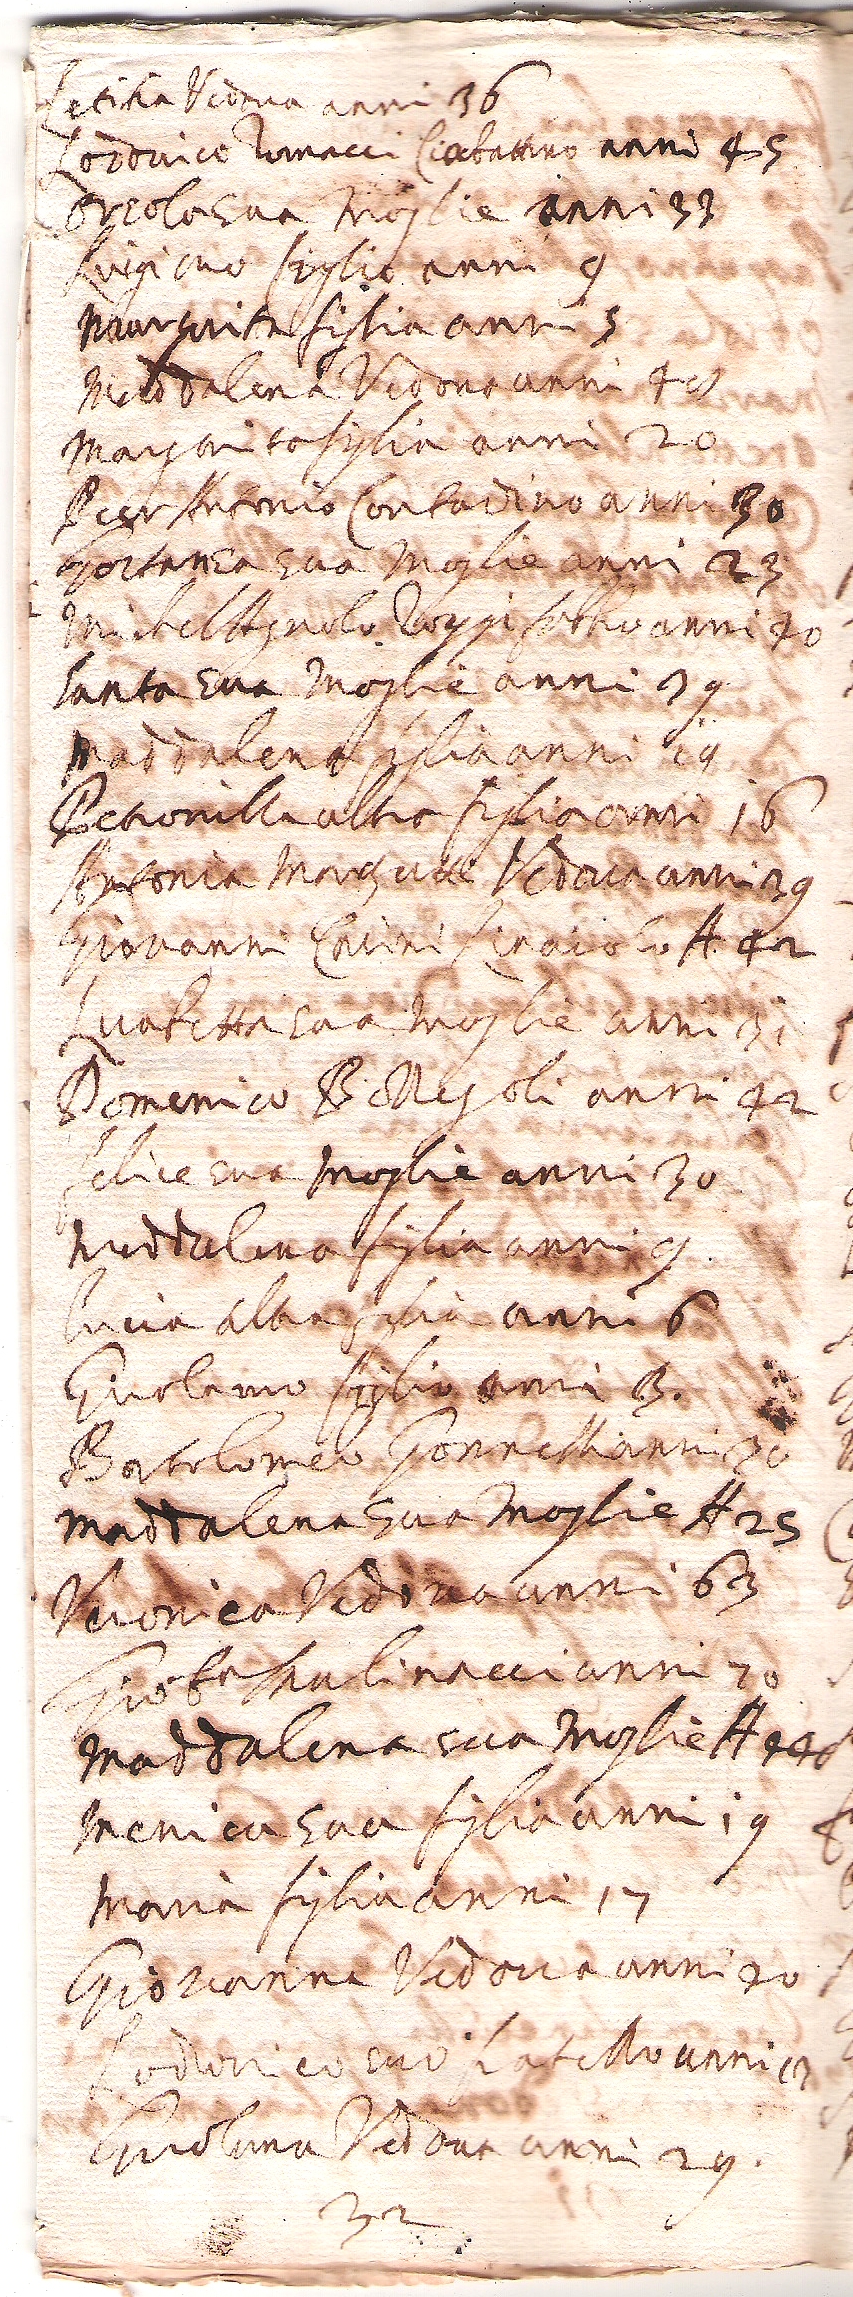 Letitia Vedova anni 36
Lodovico Tomacci Ciabattino anni 45
Orsola sua Moglie anni 33
Luigi suo figlio anni 9
Margarita figlia anni 5
Maddalena Vedova anni 48
Margarita figlia anni 20
Pier Antonio Contadino anni 30
Gostanza sua Moglie anni 23
Michel Agnolo anni 40
Santa sua Moglie anni 39
Maddalena figlia anni 19
Petronilla altra figlia anni 16
Antonia Vedova anni 39
Giovanni A. 42
sua Moglie anni 31
Domenico anni 42
Felice sua Moglie anni 30
Maddalena figlia anni 9.
Lucia altra figlia anni 6
Girolamo figlio anni 3.
Bartolomeo Gonnelli anni 30
Maddalena sua Moglie A 25
Veronica Vedova anni 63
Gio Batta Paulinacci anni 70
Maddalena sua Moglie A
Menica sua figlia anni 19
Maria figlia anni 17
Giovanna Vedova anni 40
Lodovico suo fratello anni
Girolama Vedova anni 29.
32